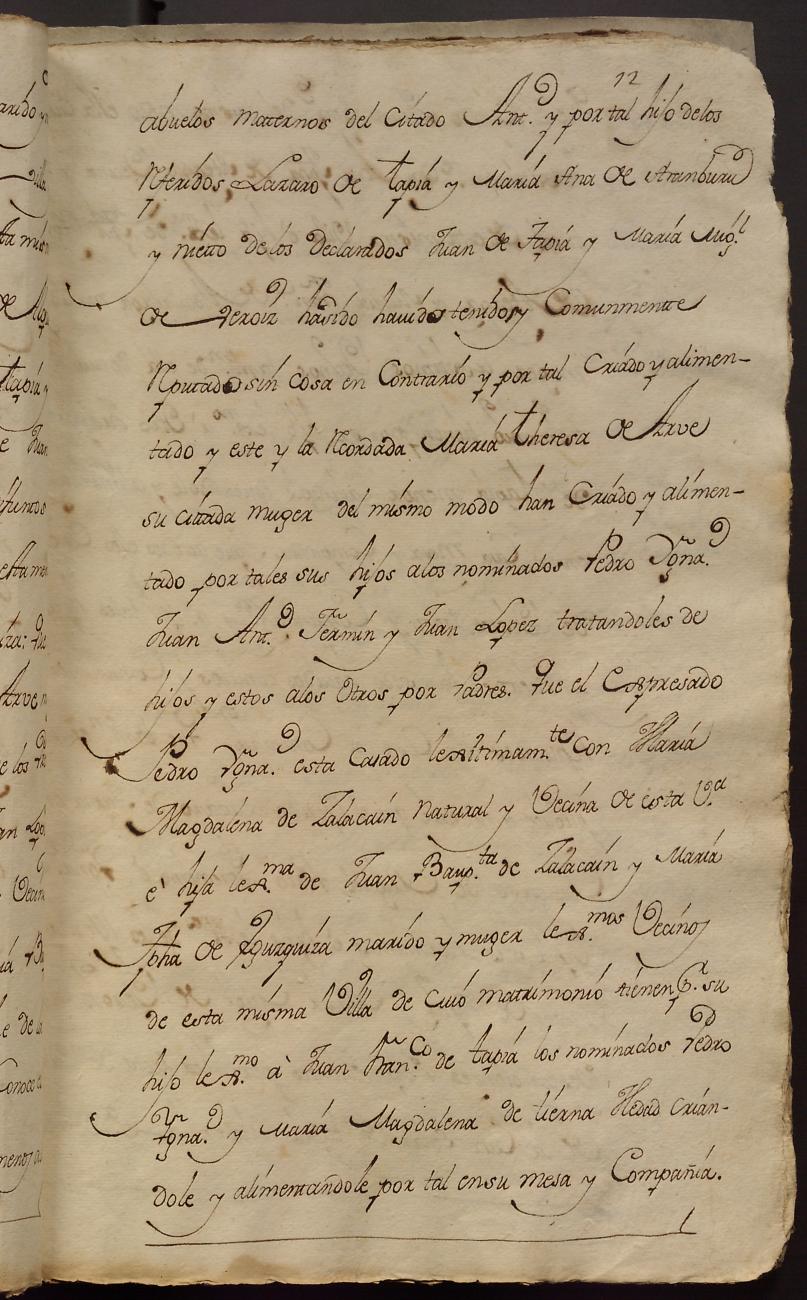 12
abuelos maternos del Citado Ant.º y por tal hijo de los
Referidos Lazaro de tapia y Maria Ana de Aranburu
y nieto de los Declarados Juan de Tapia y Maria Mig.l
de Veroiz hasido havido tenido y Comunmente
Reputado sin cosa en Contrario y por tal Criado y alimen-
tado y este y la Recordada Maria theresa de Arve
su citada muger del mismo modo han Criado y alimen-
tado por tales sus hijos alos nominados Pedro Ygna.º
Juan Ant.º Fermin y Juan Lopez tratandoles de
hijos y estos alos Otros por Padres. Que el Expresado
Pedro Ygna.º esta Casado lexitimam.te con Maria
Magdalena de Zalacain Natural y Vecina de esta V.a
è hija lex.ma de Juan Baup.ta de Zalacain y Maria
Jpha de Yguzquiza marido y muger lex.mos Vecinos
de esta misma Villa de Cuio matrimonio tienen P.r su
hijo lex.mo à Juan Fran.co de tapia los nominados Pedro
Ygna.º y Maria Magdalena de tierna Hedad crian-
dole y alimentandole por tal en su mesa y Compañia.